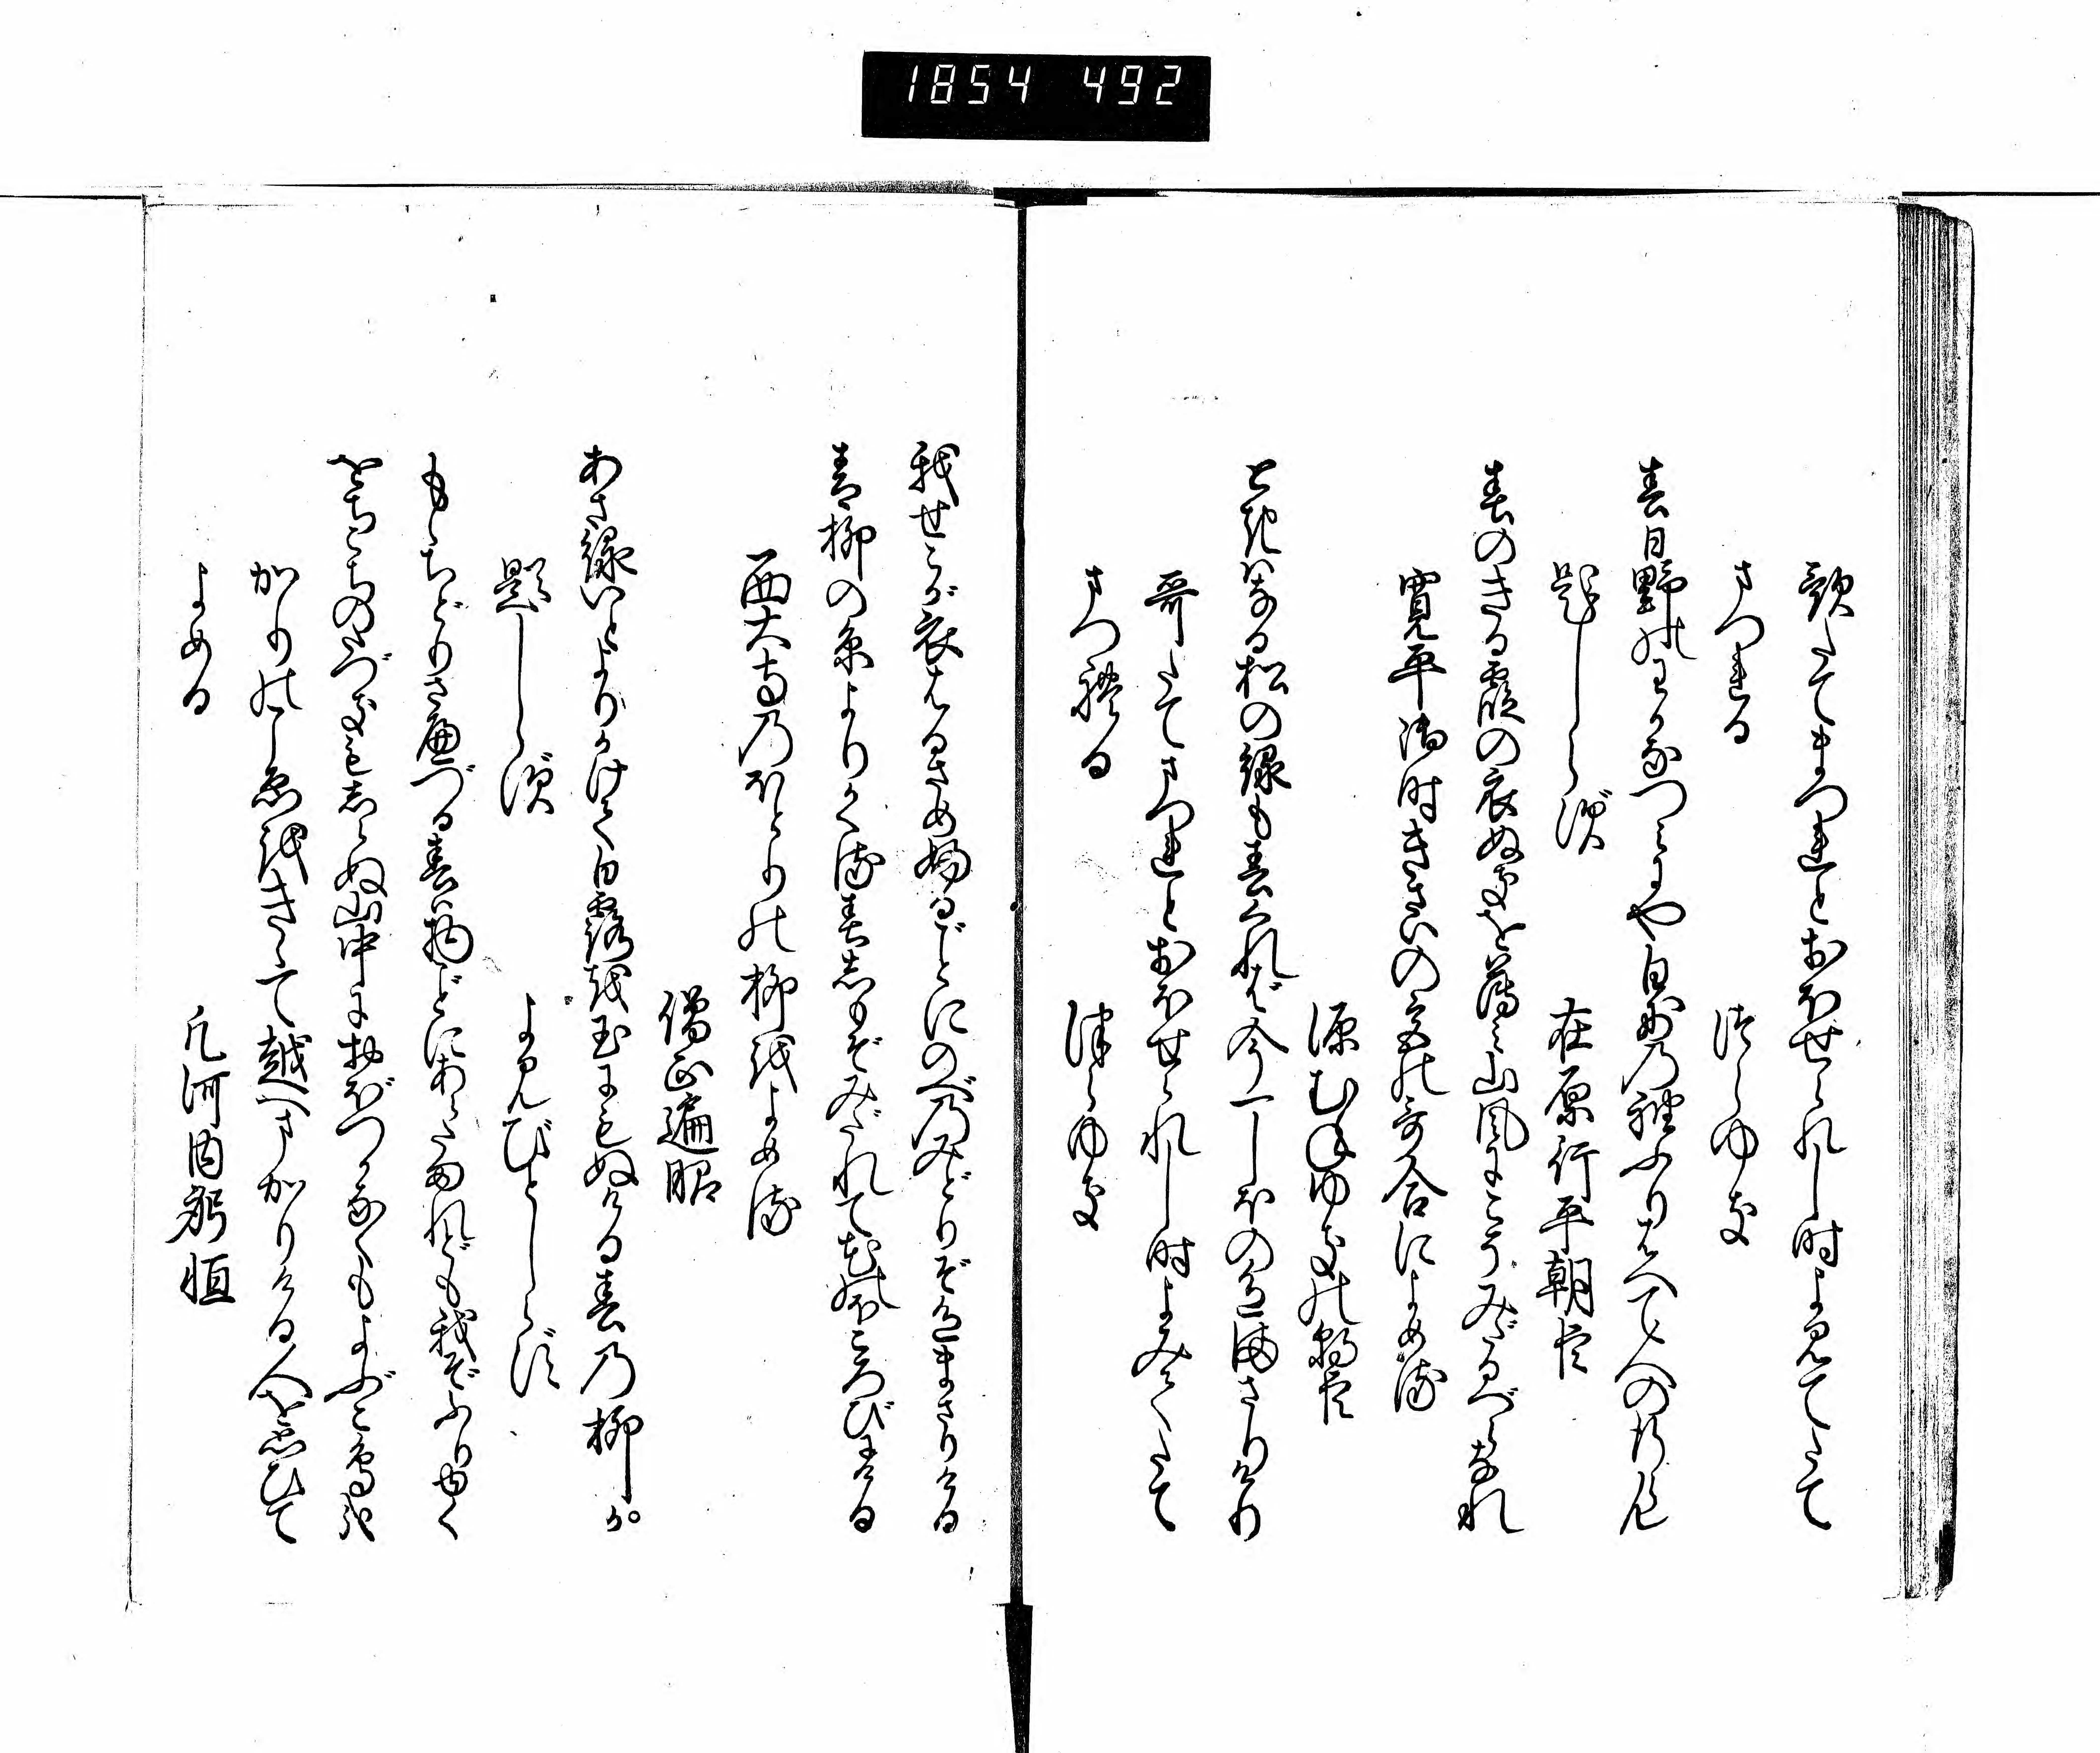 1854 492
歌たてまつれとおほせられし時よみてたて
まつれる　つらゆき
春日野のわかなつみにや白妙の袖ふりはへて人のゆくらん
題しらず　在原行平朝臣
春のきる霞の衣ぬきをを薄み山風にこそみだるべらなれ
寛平御時きさいの宮の哥合によめる
源むねゆきの朝臣
ときはなる松の緑も春くれば今一しほの色まさりけり
哥たてまつれとおほせられし時よみてたて
まつれる　つらゆき
我せこが衣はるさめふるごとにのべのみどりぞ色まさりける
青柳の糸よりかくる春しもぞみだれて花のほころびにける
西大寺のほとりの柳をよめる
僧正遍昭
あさ緑いとよりかけて白露を玉にもぬける春の柳か
題しらず　よみびとしらず
もゝちどりさへづる春は物ごとにあらたまれども我ぞふり行く
をちこちのたづきもしらぬ山中におぼつかなくもよぶこ鳥哉
かりのこゑをきゝて越へまかりける人を思ひて
よめる　凡河内躬恒